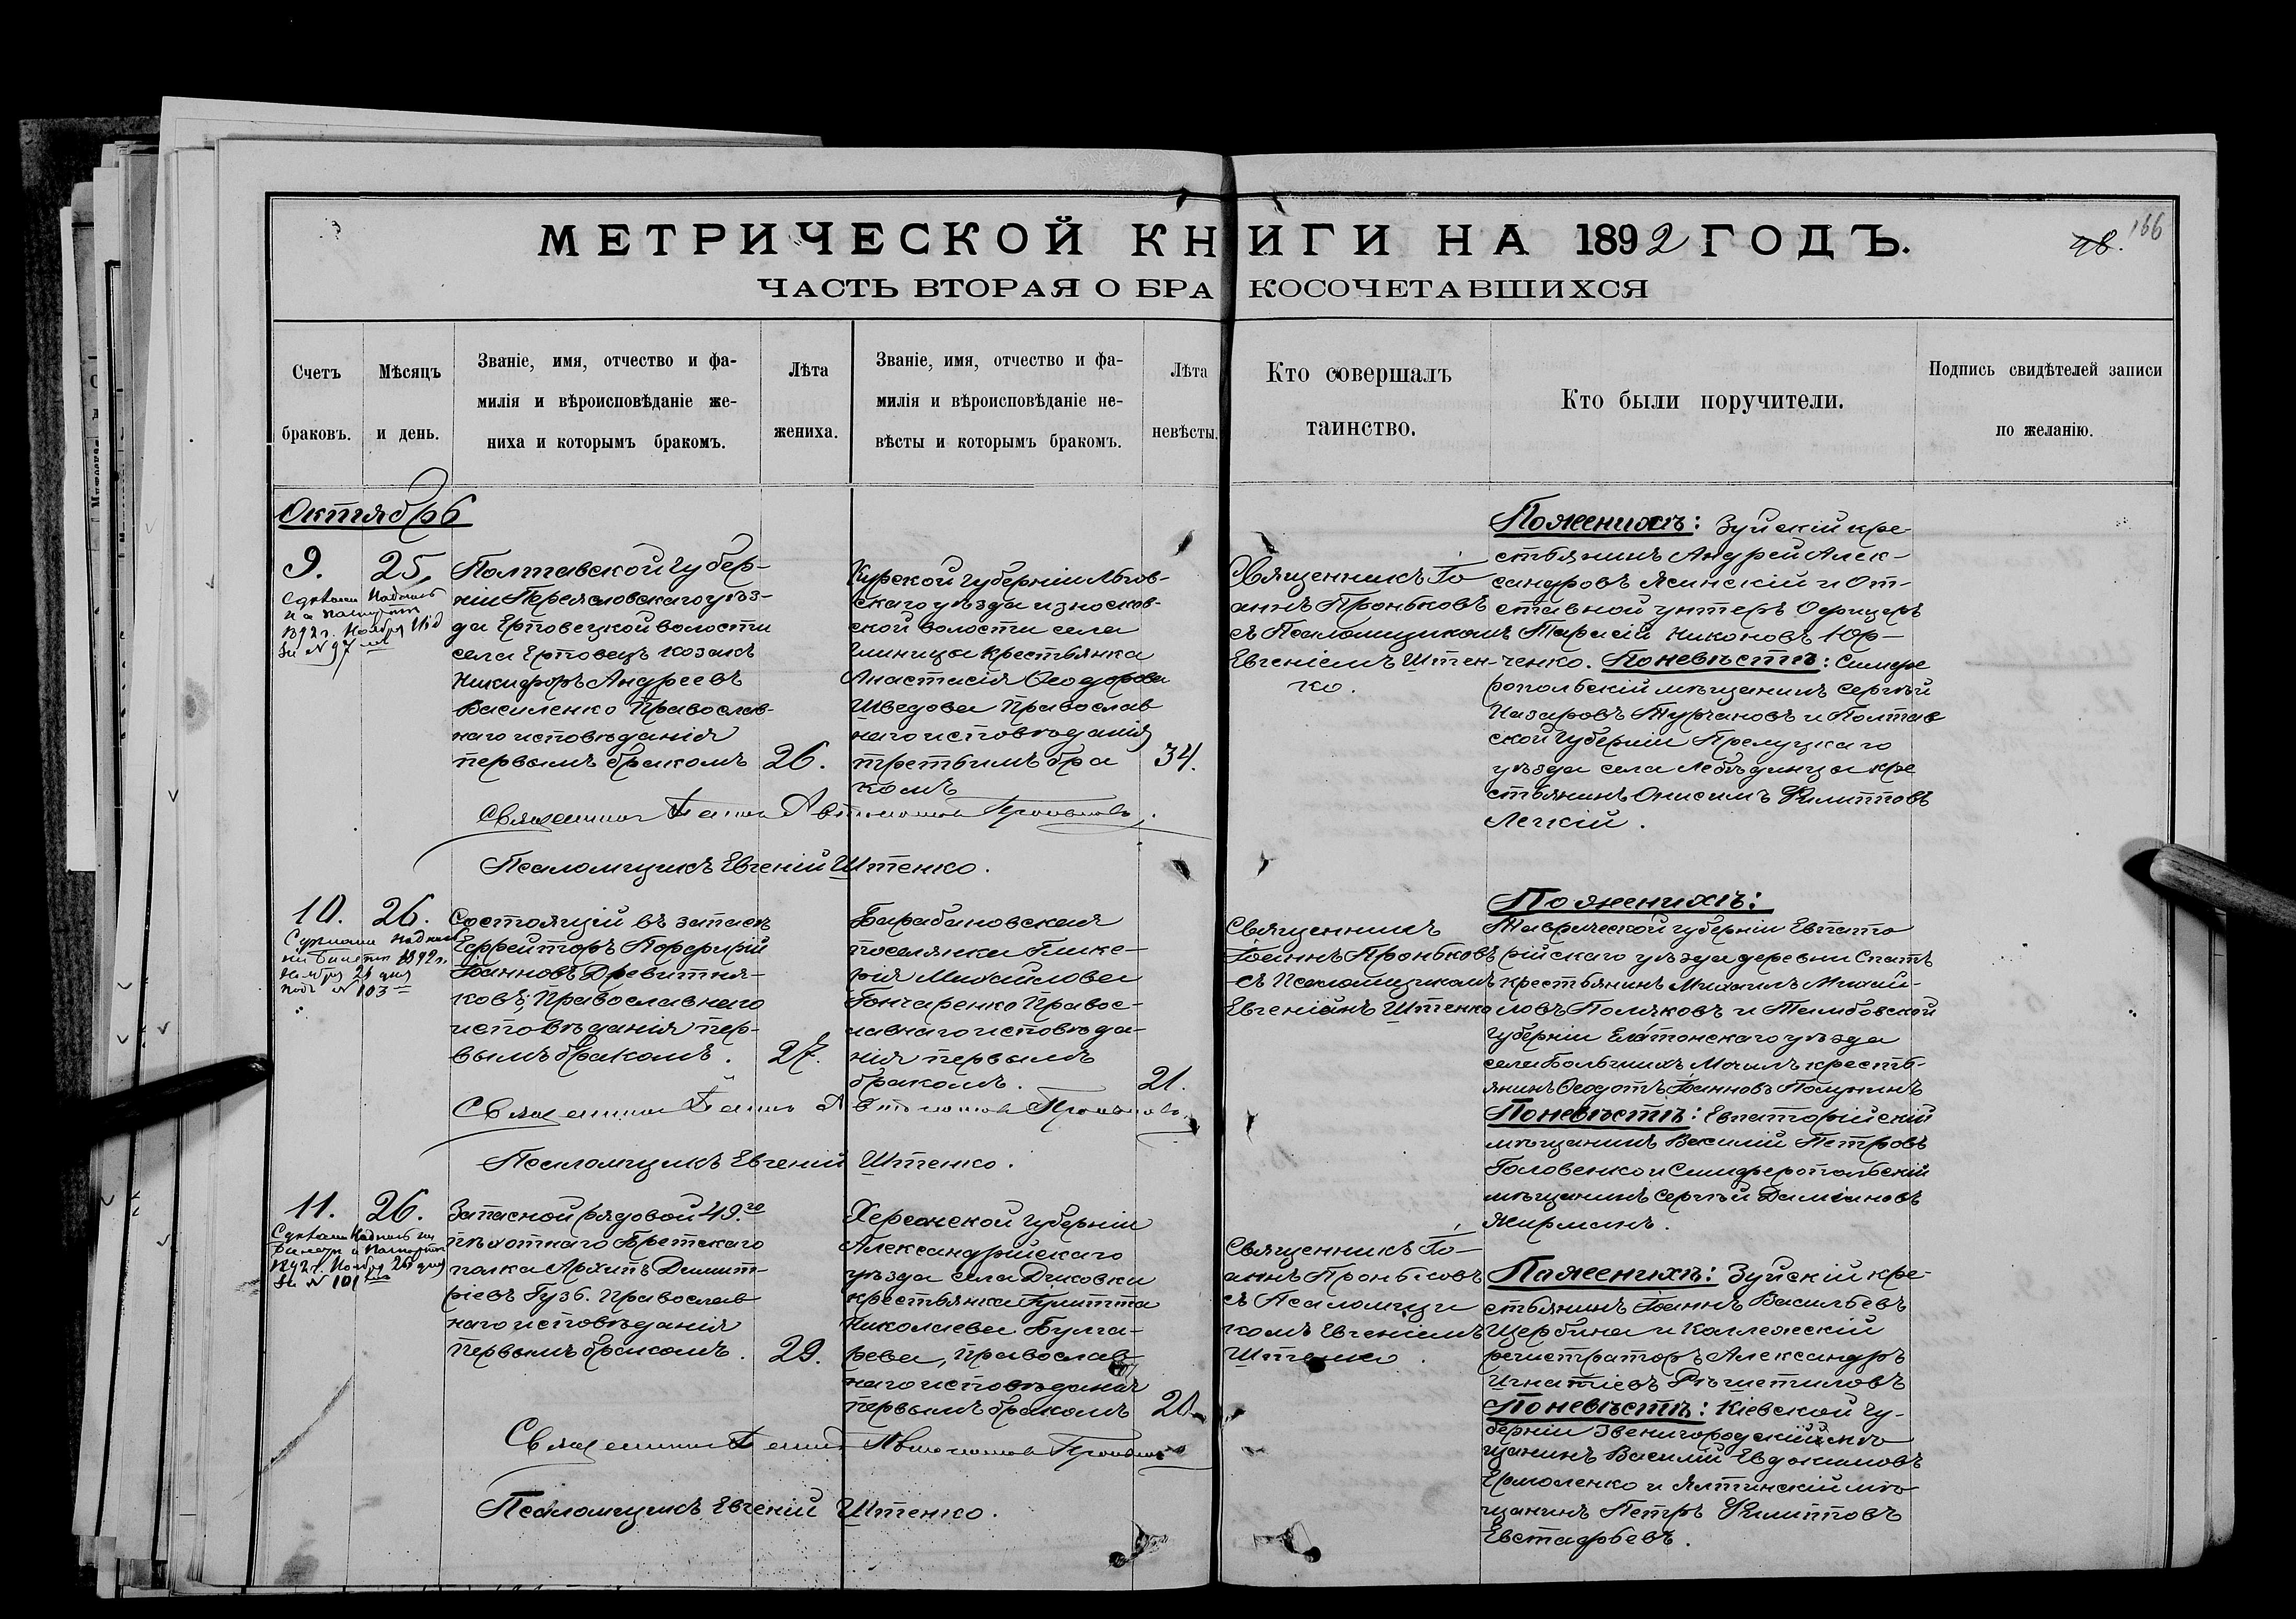 МЕТРИЧЕСКОЙ КНИГИ НА 1892 ГОДЪ.
48. 166
ЧАСТЬ ВТОРАЯ О БРАКОСОЧЕТАВШИХСЯ
Счетъ
браковъ.
Мѣсяцъ
и день.
Званіе, имя, отчество и фа-
милія и вѣроисповѣданіе же-
ниха и которымъ бракомъ.
Лѣта
жениха.
Званіе, имя, отчество и фа-
милія и вѣроисповѣданіе не-
вѣсты и которымъ бракомъ.
Лѣта
невѣсты.
Кто совершалъ
таинство.
Кто были поручители.
Подпись свидѣтелей записи
по желанію.
Октябрь
9.
25.
1892 г. Ноября
за № 97
Полтавской губер-
ніи Переясловскаго уѣз-
да Ерковецкой волости
села Ерковецъ козакъ
Никифоръ Андреевъ
Василенко Православ-
наго исповѣданія
первымъ бракомъ
26.
Курской губерніи Льгов-
скаго уѣзда
ской волости села
Глиницы крестьянка
Анастасія Ѳеодорова
Шведова Православ
наго исповѣданія
третьимъ бра
комъ
34.
Священникъ Іо
аннъ Проньковъ
съ Псаломщикомъ
Евгеніемъ Штен-
ко.
По женихѣ: Зуйскій кре
стьянинъ Андрей Алек-
сандровъ Ясинскій и От-
ставной унтеръ Офицеръ
Тарасій Никоновъ Юр-
ченко. По невѣстѣ: Симфе
ропольскій мѣщанинъ Сергѣй
Назаровъ Турчановъ и Полтав
ской губерніи Прелуцкаго
уѣзда села Лебѣдинцы кре
стьянинъ Онисимъ Филипповъ
Легкій.
Священникъ Іоаннъ Автономовъ Проньковъ.
Псаломщикъ Евгеній Штенко.
10.
26.
1892 г.
Ноября 26 дня
подъ № 103
Состоящій въ запасѣ
Ефрейторъ Порфирій
Іоанновъ Древитня-
ковъ; Православнаго
исповѣданія пер-
вымъ бракомъ.
27.
Барабановская
поселянка Глике-
рія Михайлова
Гончаренко Правос-
лавнаго исповѣда-
нія первымъ
бракомъ.
21.
Священникъ
Іоаннъ Проньковъ
съ Псаломщикомъ
Евгеніемъ Штенко
По женихѣ:
Таврической губерніи Евпато
рійскаго уѣзда деревни Спатъ
крестьянинъ Михаилъ Михай-
ловъ Поляковъ и Тамбовской
губерніи Елатомскаго уѣзда
села Большихъ Мочилъ кресть-
янинъ Ѳеодотъ Іоанновъ Полунинъ
По невѣстѣ: Евпаторійскій
мѣщанинъ Василій Петровъ
Головенко и Симферопольскій
мѣщанинъ Сергѣй Даміановъ
Жирманъ.
Священникъ Іоаннъ Автономовъ Проньковъ.
Псаломщикъ Евгеній Штенко.
11.
26.
1892 г. Ноября 26 дня
за № 101
Запасной рядовой 49.го
пѣхотнаго Бретскаго
полка Архипъ Димит-
ріевъ Гузь. Православ
наго исповѣданія
первымъ бракомъ.
29.
Херсонской губерніи
Александрійскаго
уѣзда села Диковки
крестьянка
Николаева Булга-
рева, Православ
наго исповѣданія
первымъ бракомъ
20.
Священникъ Іо-
аннъ Проньковъ
съ Псаломщи
комъ Евгеніемъ
Штенко.
По женихѣ: Зуйскій кре-
стьянинъ Іоаннъ Васильевъ
Щербина и Коллежскій
регистраторъ Александръ
Игнатіевъ Рѣшетиловъ
По невѣстѣ: Кіевской гу-
берніи Звенигородскій мѣ
щанинъ Василій Евдокимовъ
Ермоленко и Ялтинскій мѣ
щанинъ Петръ Филипповъ
Евстафьевъ.
Священникъ Іоаннъ Автономовъ Проньковъ
Псаломщикъ Евгеній Штенко.